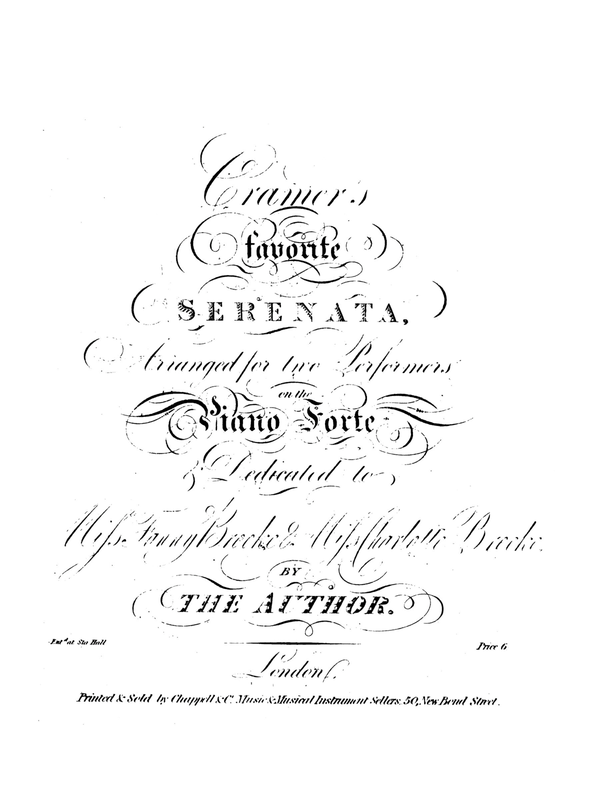 Cramer's
favorite
SERENATA,
Arranged for two Performers
on the
Piano Forte
& Dedicated to
Miss Fanny Brooke & Miss Charlotte Brooke.
BY
THE AUTHOR.
Ent.d at Sta Hall
Price 6
London,
Printed & Sold by Chappell & Co. Music & Musical Instrument Sellers, 50, New Bond Street.